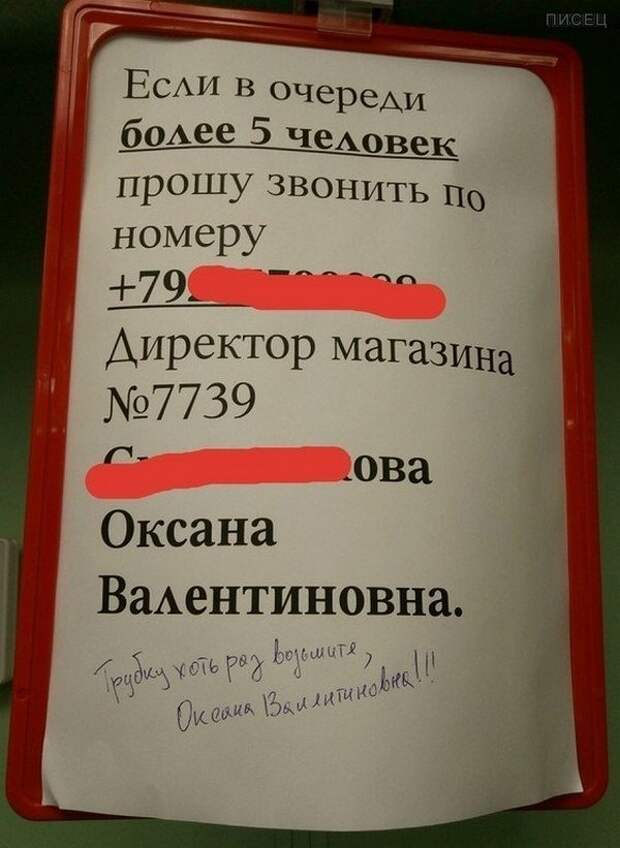 ПИСЕЦ
Если в очереди
более 5 человек
прошу звонить по
номеру
+79
Директор магазина
№7739
ова
Оксана
Валентиновна.
Трубку хоть раз возьмите,
Оксана Валентиновна!!!